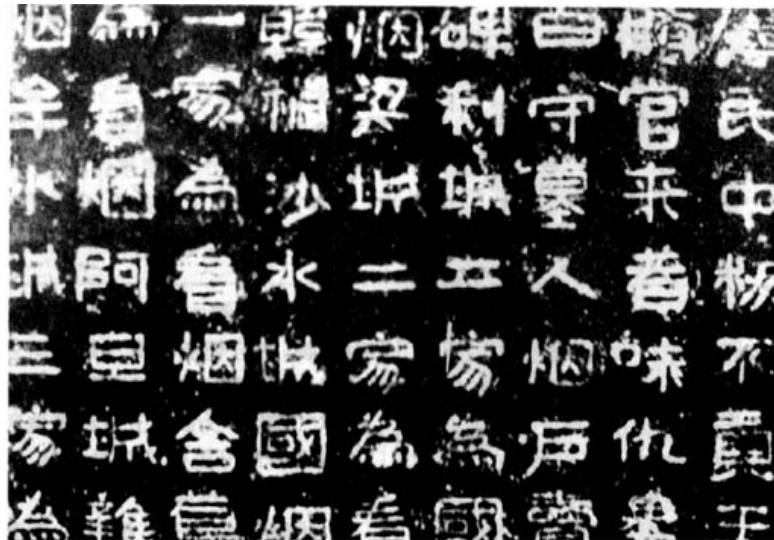 屬民中叛不貢王
官来者味仇婁
百守墓人烟戶賣
碑利城五家為國
烟梁城二家為看
韓穢沙水城國烟
一家為看烟舍蔦
為看烟阿旦城雜
烟牟水城三家為